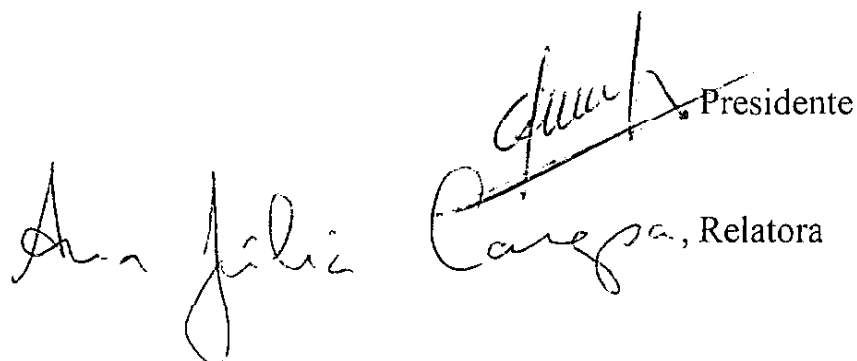 Presidente
Ana Júlia Carepa, Relatora